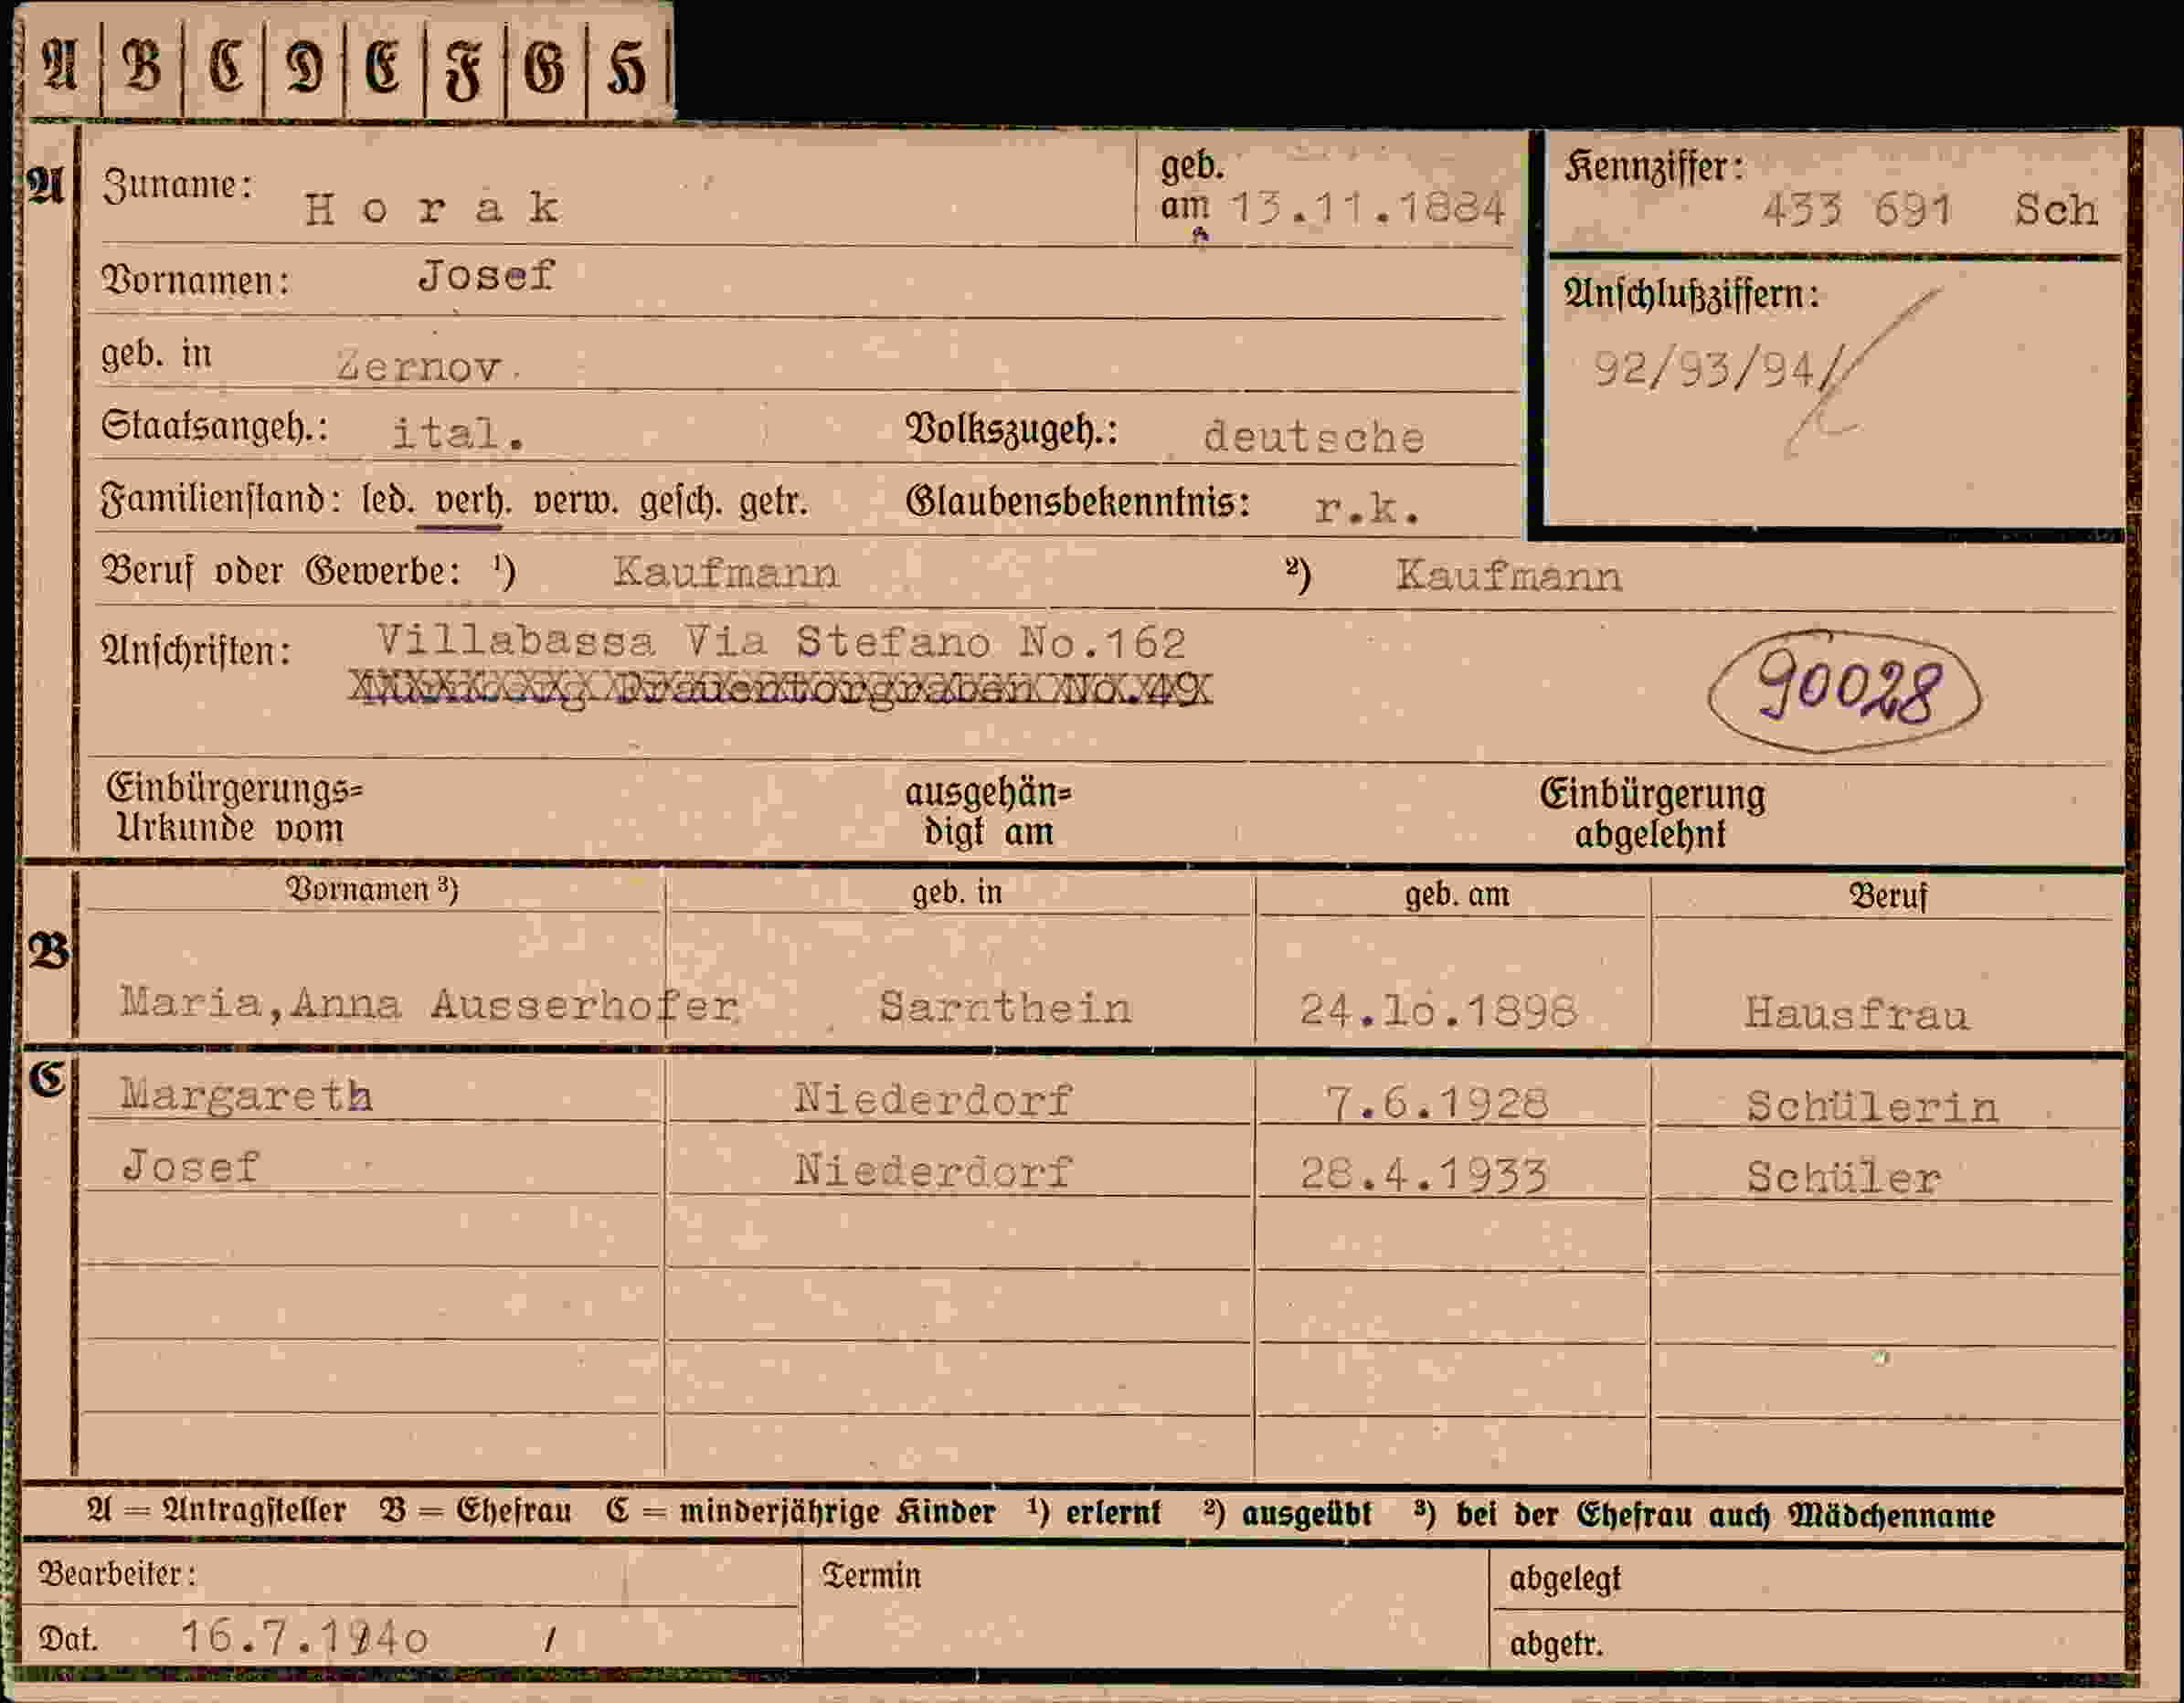 A B C D E F G H
A Zuname: Horak geb. am 13.11.1884 Kennziffer: 433 691 Sch
Vornamen: Josef Anschlußziffern:
geb. in Zernov. 92/93/94/
Staatsangeh.: ital. Volkszugeh.: deutsche
Familienstand: led. verh. verw. gesch. getr. Glaubensbekenntnis: r.k.
Beruf oder Gewerbe: ¹) Kaufmann ²) Kaufmann
Anschriften: Villabassa Via Stefano No.162
No.49
90028
Einbürgerungs= ausgehän= Einbürgerung
Urkunde vom digt am abgelehnt
Vornamen ³) geb. in geb. am Beruf
B
Maria,Anna Ausserhofer Sarnthein 24.lo.1898 Hausfrau
C Margareth Niederdorf 7.6.1928 Schülerin
Josef Niederdorf 28.4.1933 Schüler
A = Antragsteller B = Ehefrau C = minderjährige Kinder ¹) erlernt ²) ausgeübt ³) bei der Ehefrau auch Mädchenname
Bearbeiter: Termin abgelegt
Dat. 16.7.194o / abgetr.